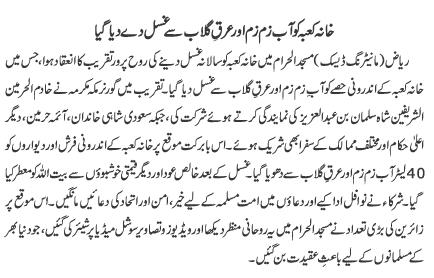 خانہ کعبہ کو آب زم زم اور عرق گلاب سے غسل دے دیا گیا
ریاض (مانیٹرنگ ڈیسک) مسجد الحرام میں خانہ کعبہ کو سالانہ غسل دینے کی روح پرور تقریب کا انعقاد ہوا، جس میں
خانہ کعبہ کے اندرونی حصے کو آب زم زم اور عرق گلاب سے غسل دیا گیا۔ تقریب میں گورنر مکہ مکرمہ نے خادم الحرمین
الشریفین شاہ سلمان بن عبدالعزیز کی نمایندگی کرتے ہوئے شرکت کی، جبکہ سعودی شاہی خاندان، آئمہ حرمین، دیگر
اعلیٰ حکام اور مختلف ممالک کے سفرا بھی شریک ہوئے۔ اس بابرکت موقع پر خانہ کعبہ کے اندرونی فرش اور دیواروں کو
40 لیٹر آب زم زم اور عرق گلاب سے دھویا گیا۔ غسل کے بعد خالص عود اور دیگر قیمتی خوشبوؤں سے بیت اللہ کو معطر کیا
گیا۔ شرکاء نے نوافل ادا کیے اور دعاؤں میں امت مسلمہ کے لیے خیر، امن اور اتحاد کی دعائیں مانگیں۔ اس موقع پر
زائرین کی بڑی تعداد نے مسجد الحرام میں یہ روحانی منظر دیکھا اور ویڈیوز و تصاویر سوشل میڈیا پر شیئر کی گئیں، جو دنیا بھر
کے مسلمانوں کے لیے باعثِ عقیدت بن گئیں۔